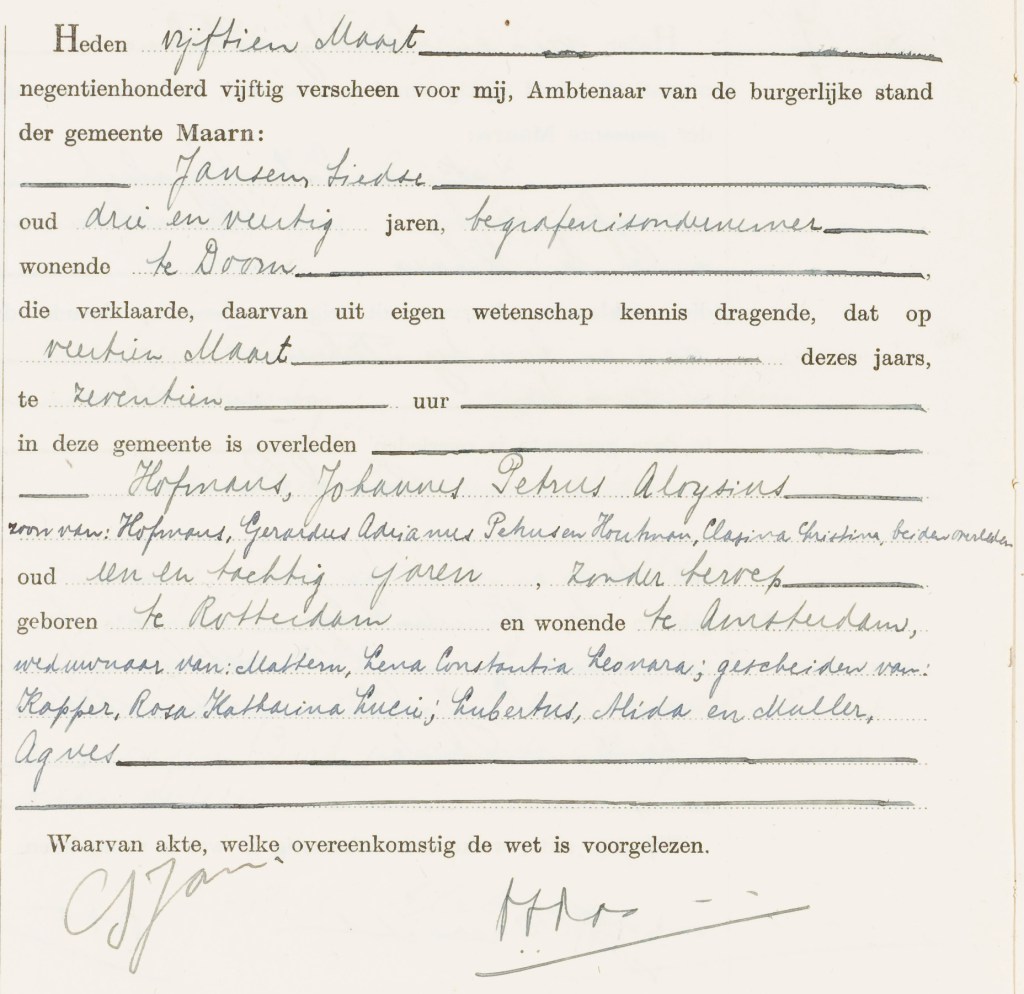 Heden vijftien Maart
negentienhonderd vijftig verscheen voor mij, Ambtenaar van de burgerlijke stand
der gemeente Maarn:
Jansen, Siedse
oud drie en veertig jaren, begrafenisondernemer
wonende te Doorn,
die verklaarde, daarvan uit eigen wetenschap kennis dragende, dat op
veertien Maart dezes jaars,
te zeventien uur
in deze gemeente is overleden
Hofmans, Johannes Petrus Aloysius
zoon van: Hofmans, Gerardus Adrianus Petrus en Houtman, Clasina Christina, beiden overleden
oud een en tachtig jaren, zonder beroep
geboren te Rotterdam en wonende te Amsterdam,
weduwnaar van: Mattern, Lena Constantia Leonara; gescheiden van:
Kapper, Rosa Katharina Lucie; Lubertus, Alida en Muller,
Agnes
Waarvan akte, welke overeenkomstig de wet is voorgelezen.